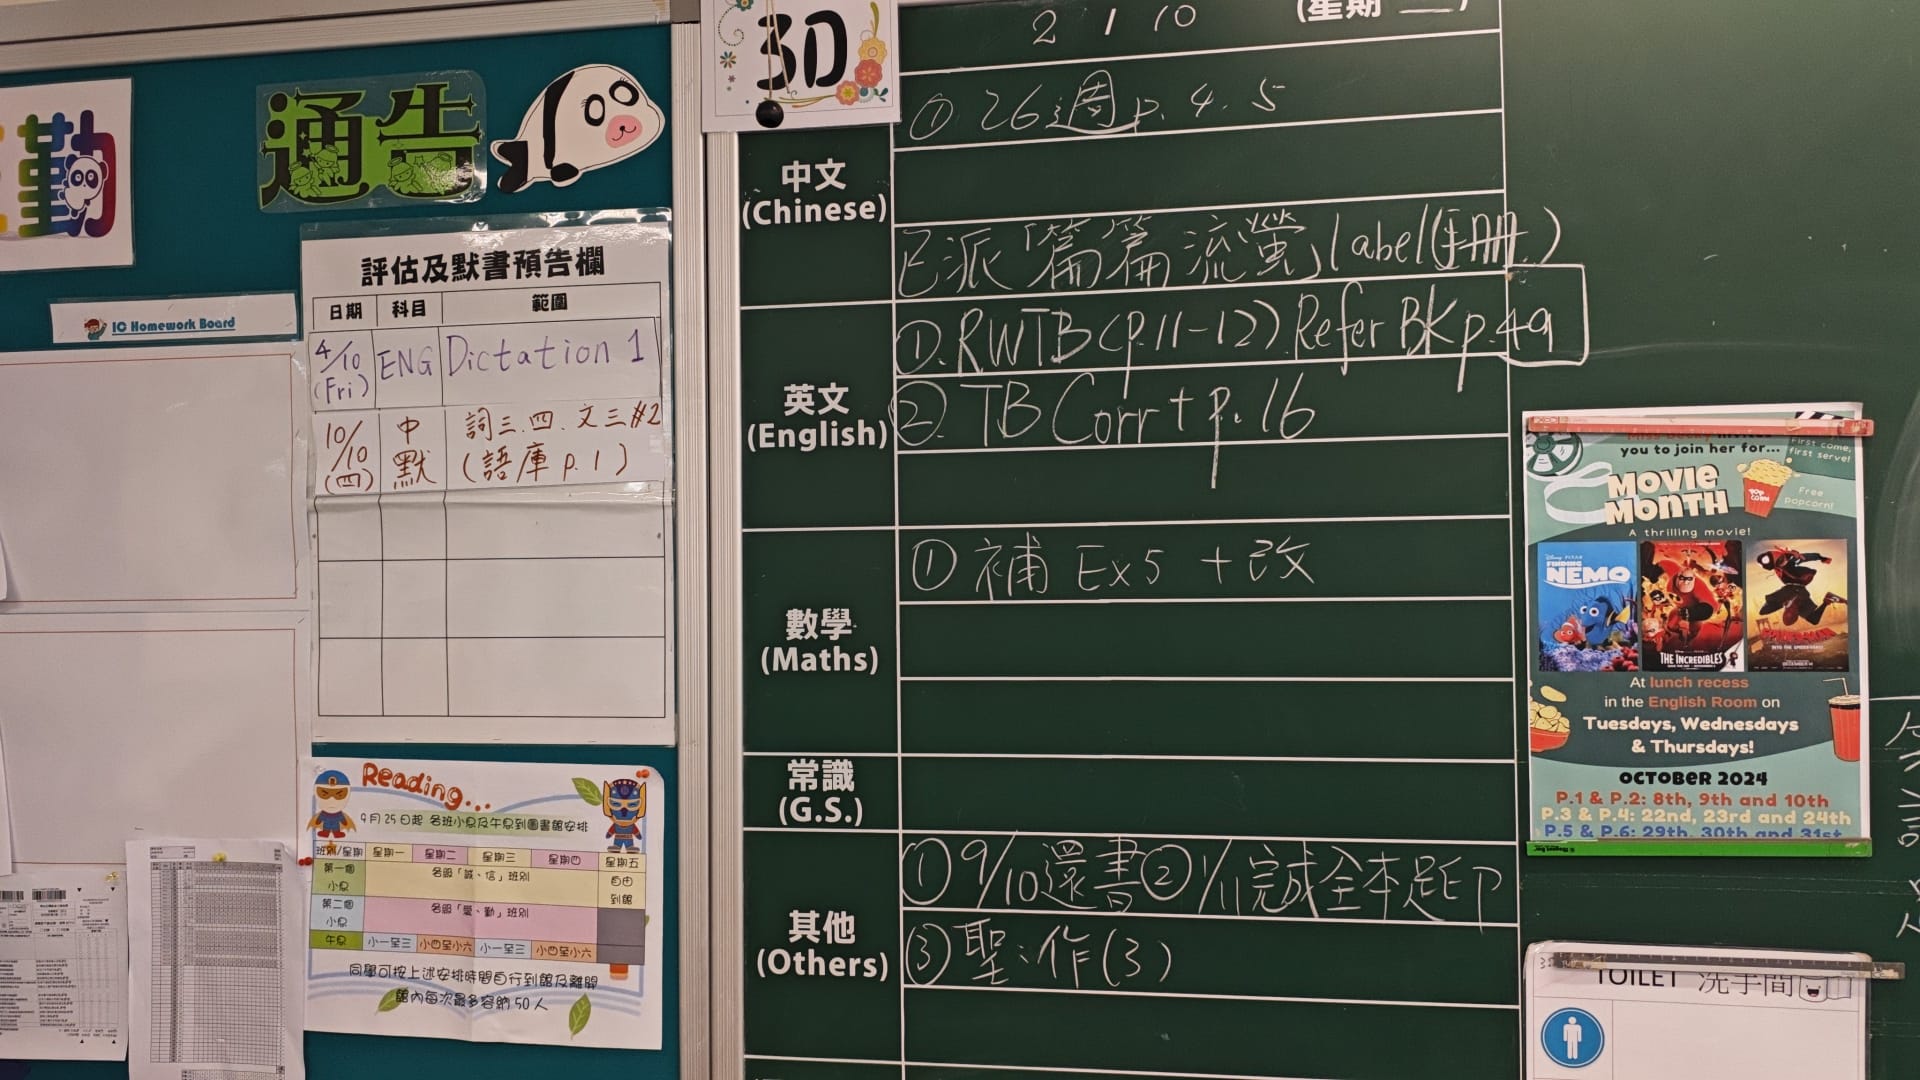 勤
通告
IC Homework Board
評估及默書預告欄
日期 科目 範圍
4/10 (Fri) ENG Dictation 1
10/10 (四) 中默 詞三.四.文三#2 (語庫 p.1)
Reading...
9月25日起 各班小息及午息到圖書館安排
班別/星期 星期一 星期二 星期三 星期四 星期五
第一個小息 各級「誠、信」班別 自由到館
第二個小息 各級「愛、勤」班別
午息 小一至三 小四至小六 小一至三 小四至小六
同學可按上述安排時間自行到館及離開
館內每次最多容納50人
3D
2 1 10 (星期 )
中文 (Chinese)
① 26週 p. 4. 5
已派「篇篇流螢」label(手冊)
英文 (English)
①. RWTB (p.11-12). Refer BK p.49
②. TB Corr + p.16
數學 (Maths)
① 補 Ex5 + 改
常識 (G.S.)
其他 (Others)
① 9/10還書 ② 1/11完成全本足印
③ 聖:作(3)
you to join her for...
First come, first serve!
MOVIE MONTH
POP CORN
Free popcorn!
A thrilling movie!
FINDING NEMO
THE INCREDIBLES
SPIDER-MAN
At lunch recess
in the English Room on
Tuesdays, Wednesdays
& Thursdays!
OCTOBER 2024
P.1 & P.2: 8th, 9th and 10th
P.3 & P.4: 22nd, 23rd and 24th
P.5 & P.6: 29th, 30th and 31st
TOILET 洗手間